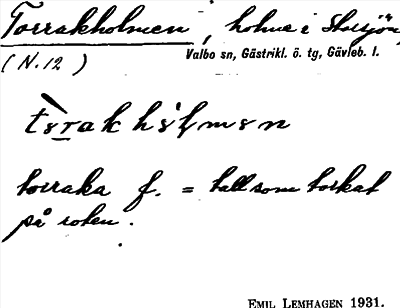 Torrakholmen, holme i Storsjön,
(N.12) Valbo sn, Gästrikl. ö. tg, Gävleb. l.
torraka f. = tall som torkat
på roten.
EMIL LEMHAGEN 1931.